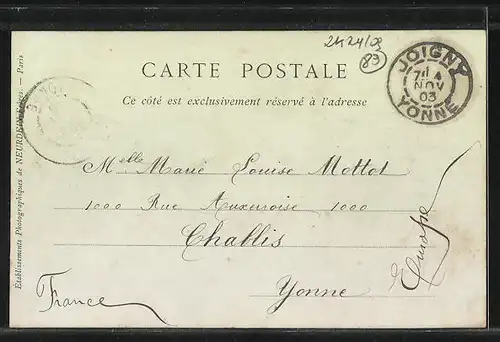 2424/09
83
CARTE POSTALE
Ce côté est exclusivement réservé à l'adresse
JOIGNY
4
NOV
03
YONNE
Melle Marie Louise Mottot
1000 Rue Auxerroise 1000
Chablis
Yonne
France
Europe
Etablissements Photographiques de NEURDEIN Frères. — Paris